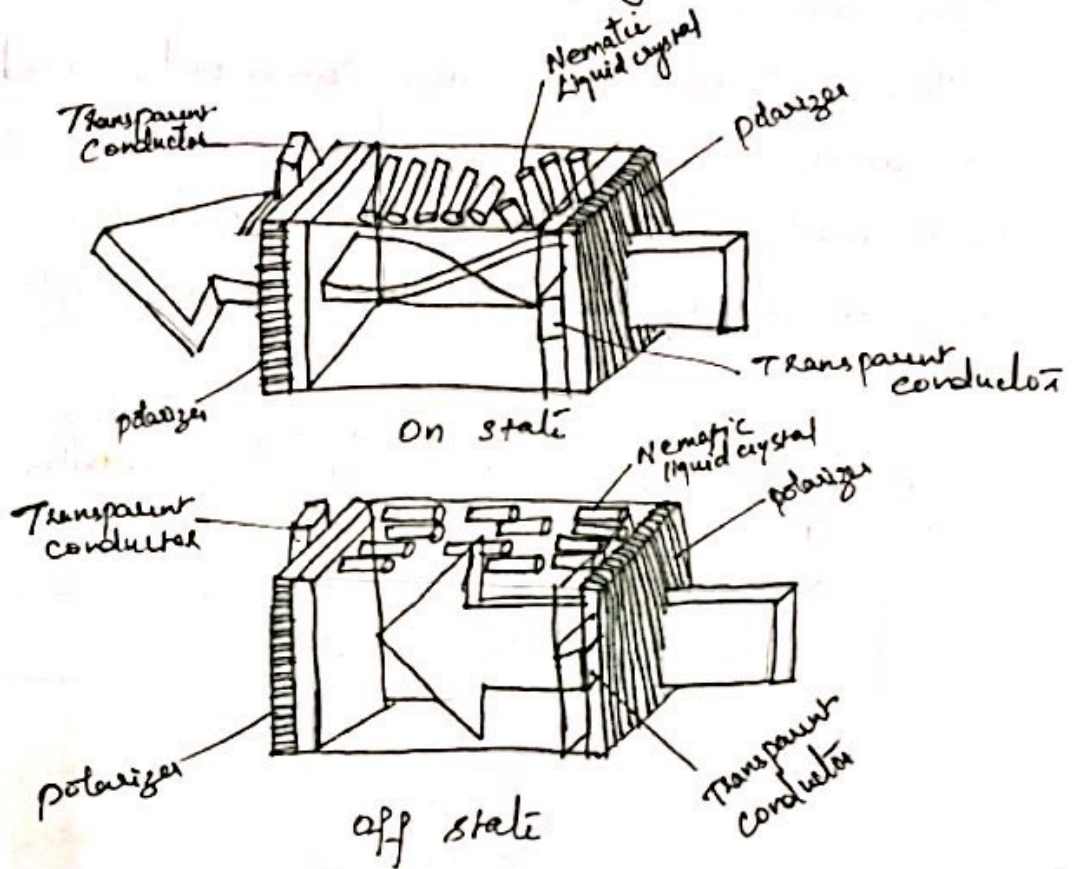 Nematic
Liquid crystal
Transparent
Conductor
polarizer
Transparent
conductor
polarizer
On state
Nematic
liquid crystal
polarizer
Transparent
conductor
polarizer
Transparent
conductor
Off state